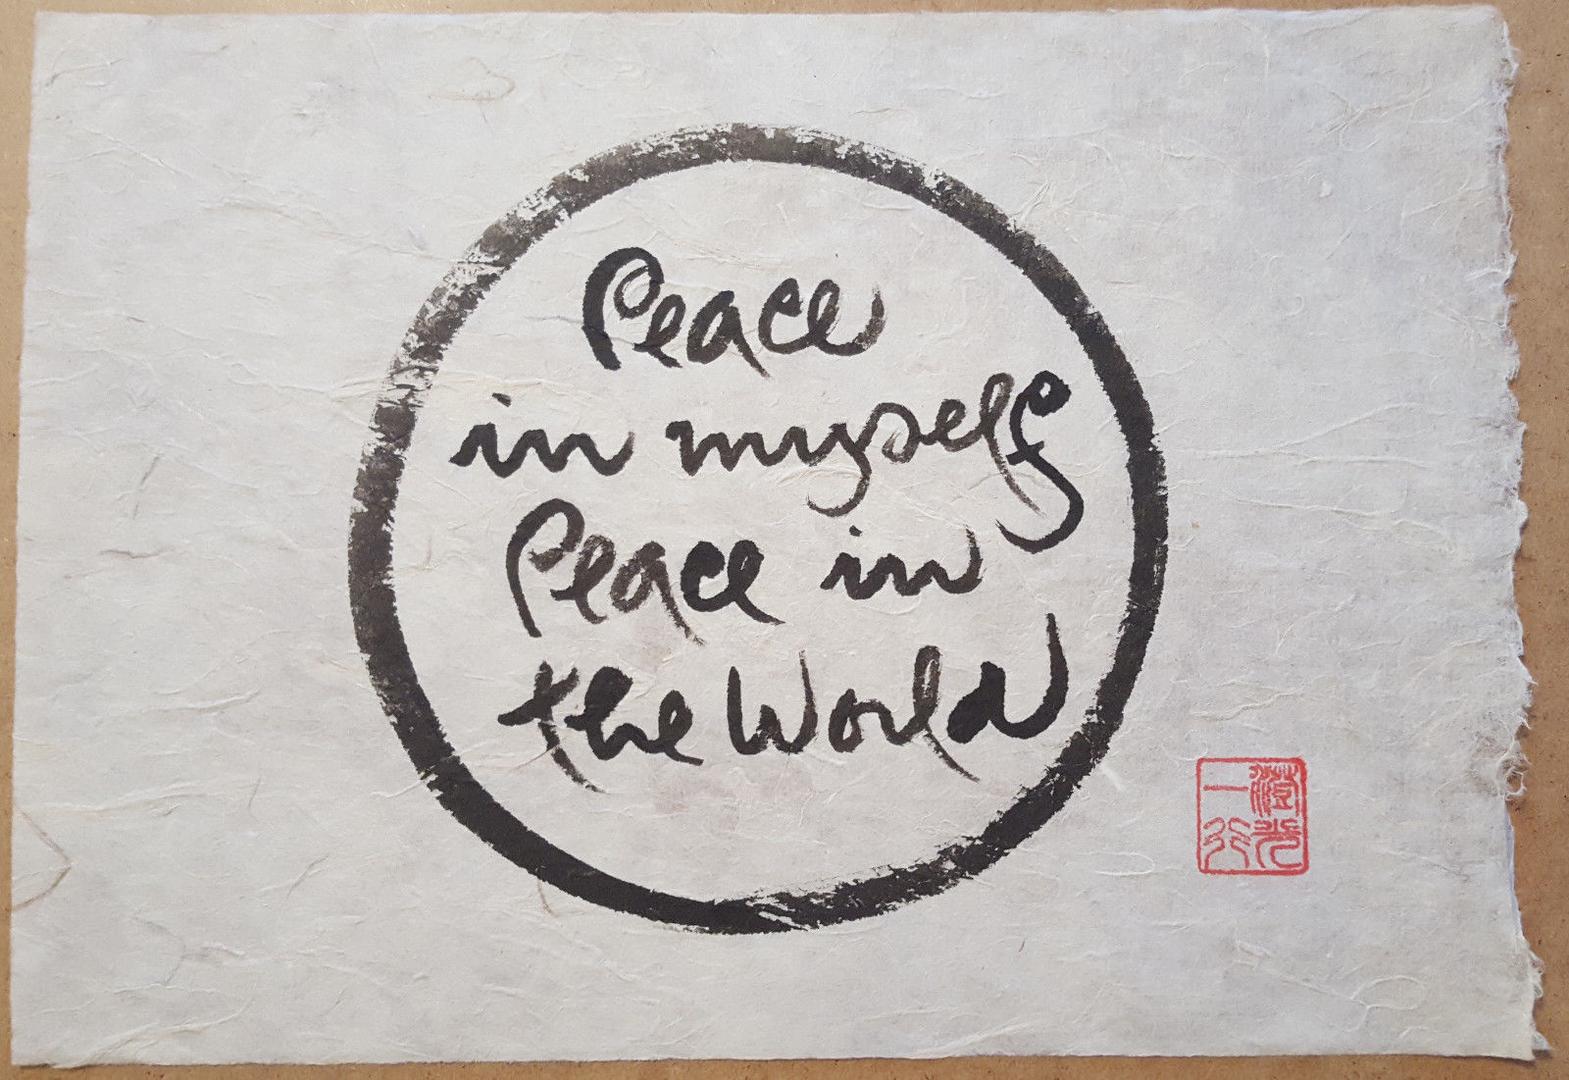 Peace
in myself
Peace in
the World
澄光
一行